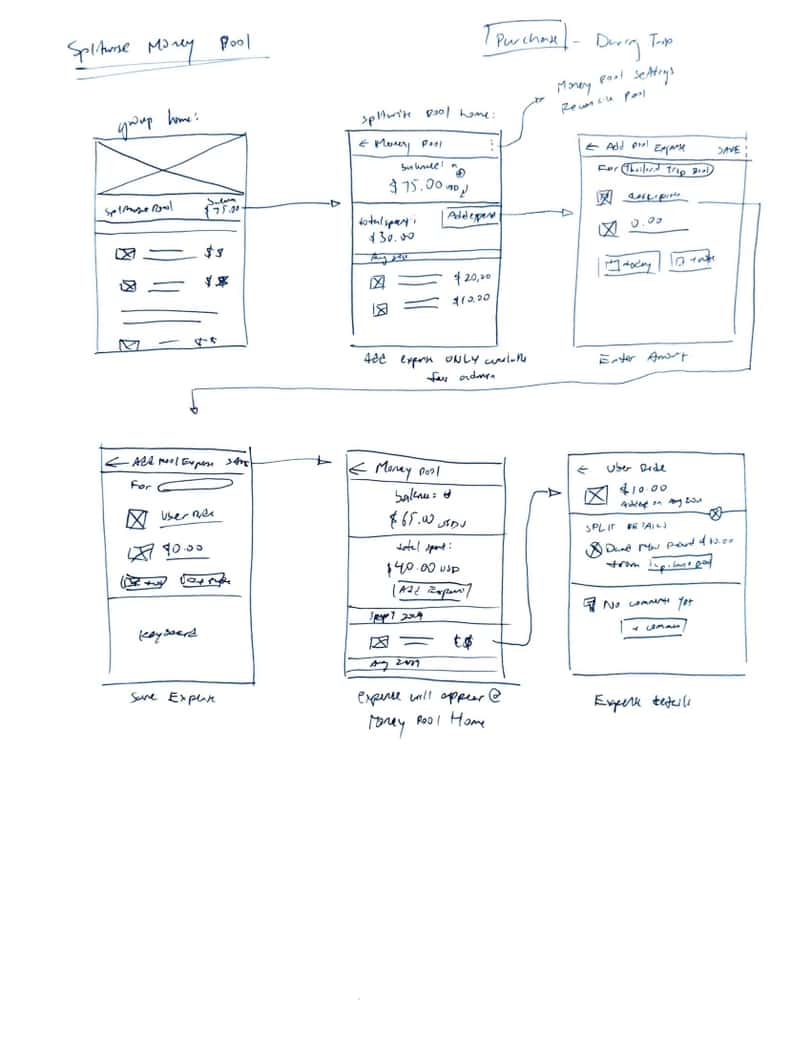 Splitwise Money Pool
Purchase - During Trip
Money pool settings
Reconcile Pool
group home:
Splitwise Pool
Balance
$75.00
$$
$$
$$
splitwise pool home:
← Money Pool
balance:
$75.00 USD
total spent:
$30.00
Add expense
Aug 2019
$20.00
$10.00
Add expense ONLY available
← Add Pool Expense SAVE
For Thailand Trip Pool
description
0.00
today
Enter Amount
← Add Pool Expense SAVE
For
Uber Ride
$0.00
Keyboard
Save Expense
← Money Pool
balance:
$65.00 USD
total spent:
$40.00 USD
Add Expense
Sept 2019
$$
Aug 2019
Expense will appear @
Money Pool Home
← Uber Ride
$10.00
Added on Aug
SPLIT DETAILS
$10.00
from
No comments yet
+ comment
Expense details